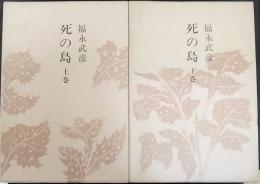 福永武彦
死の島
上巻
福永武彦
死の島
下巻